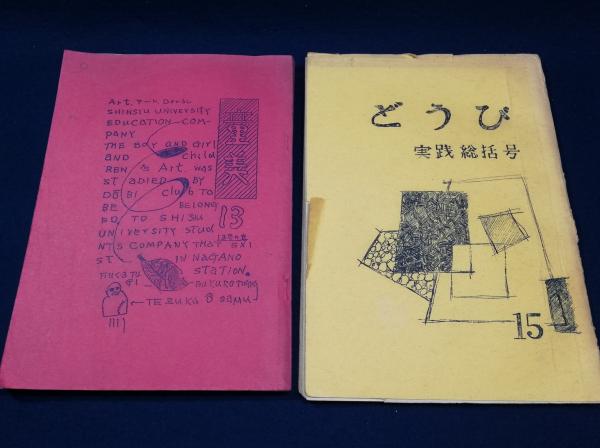 Art. アート
SHINSIU UNIVERSITY
EDUCATION COM-
PANY
THE BOY AND GIRL
AND CHILD
REN & Art. WAS
STADIED BY
DŌBI CLUB TO
BE BELONG
ED TO SHISIU
UNIVERSITY STUD
NTS COMPANY THAT EXI
ST IN NAGANO
STATION.
TEZUKA O SAMU
童美
13
どうび
実践総括号
15